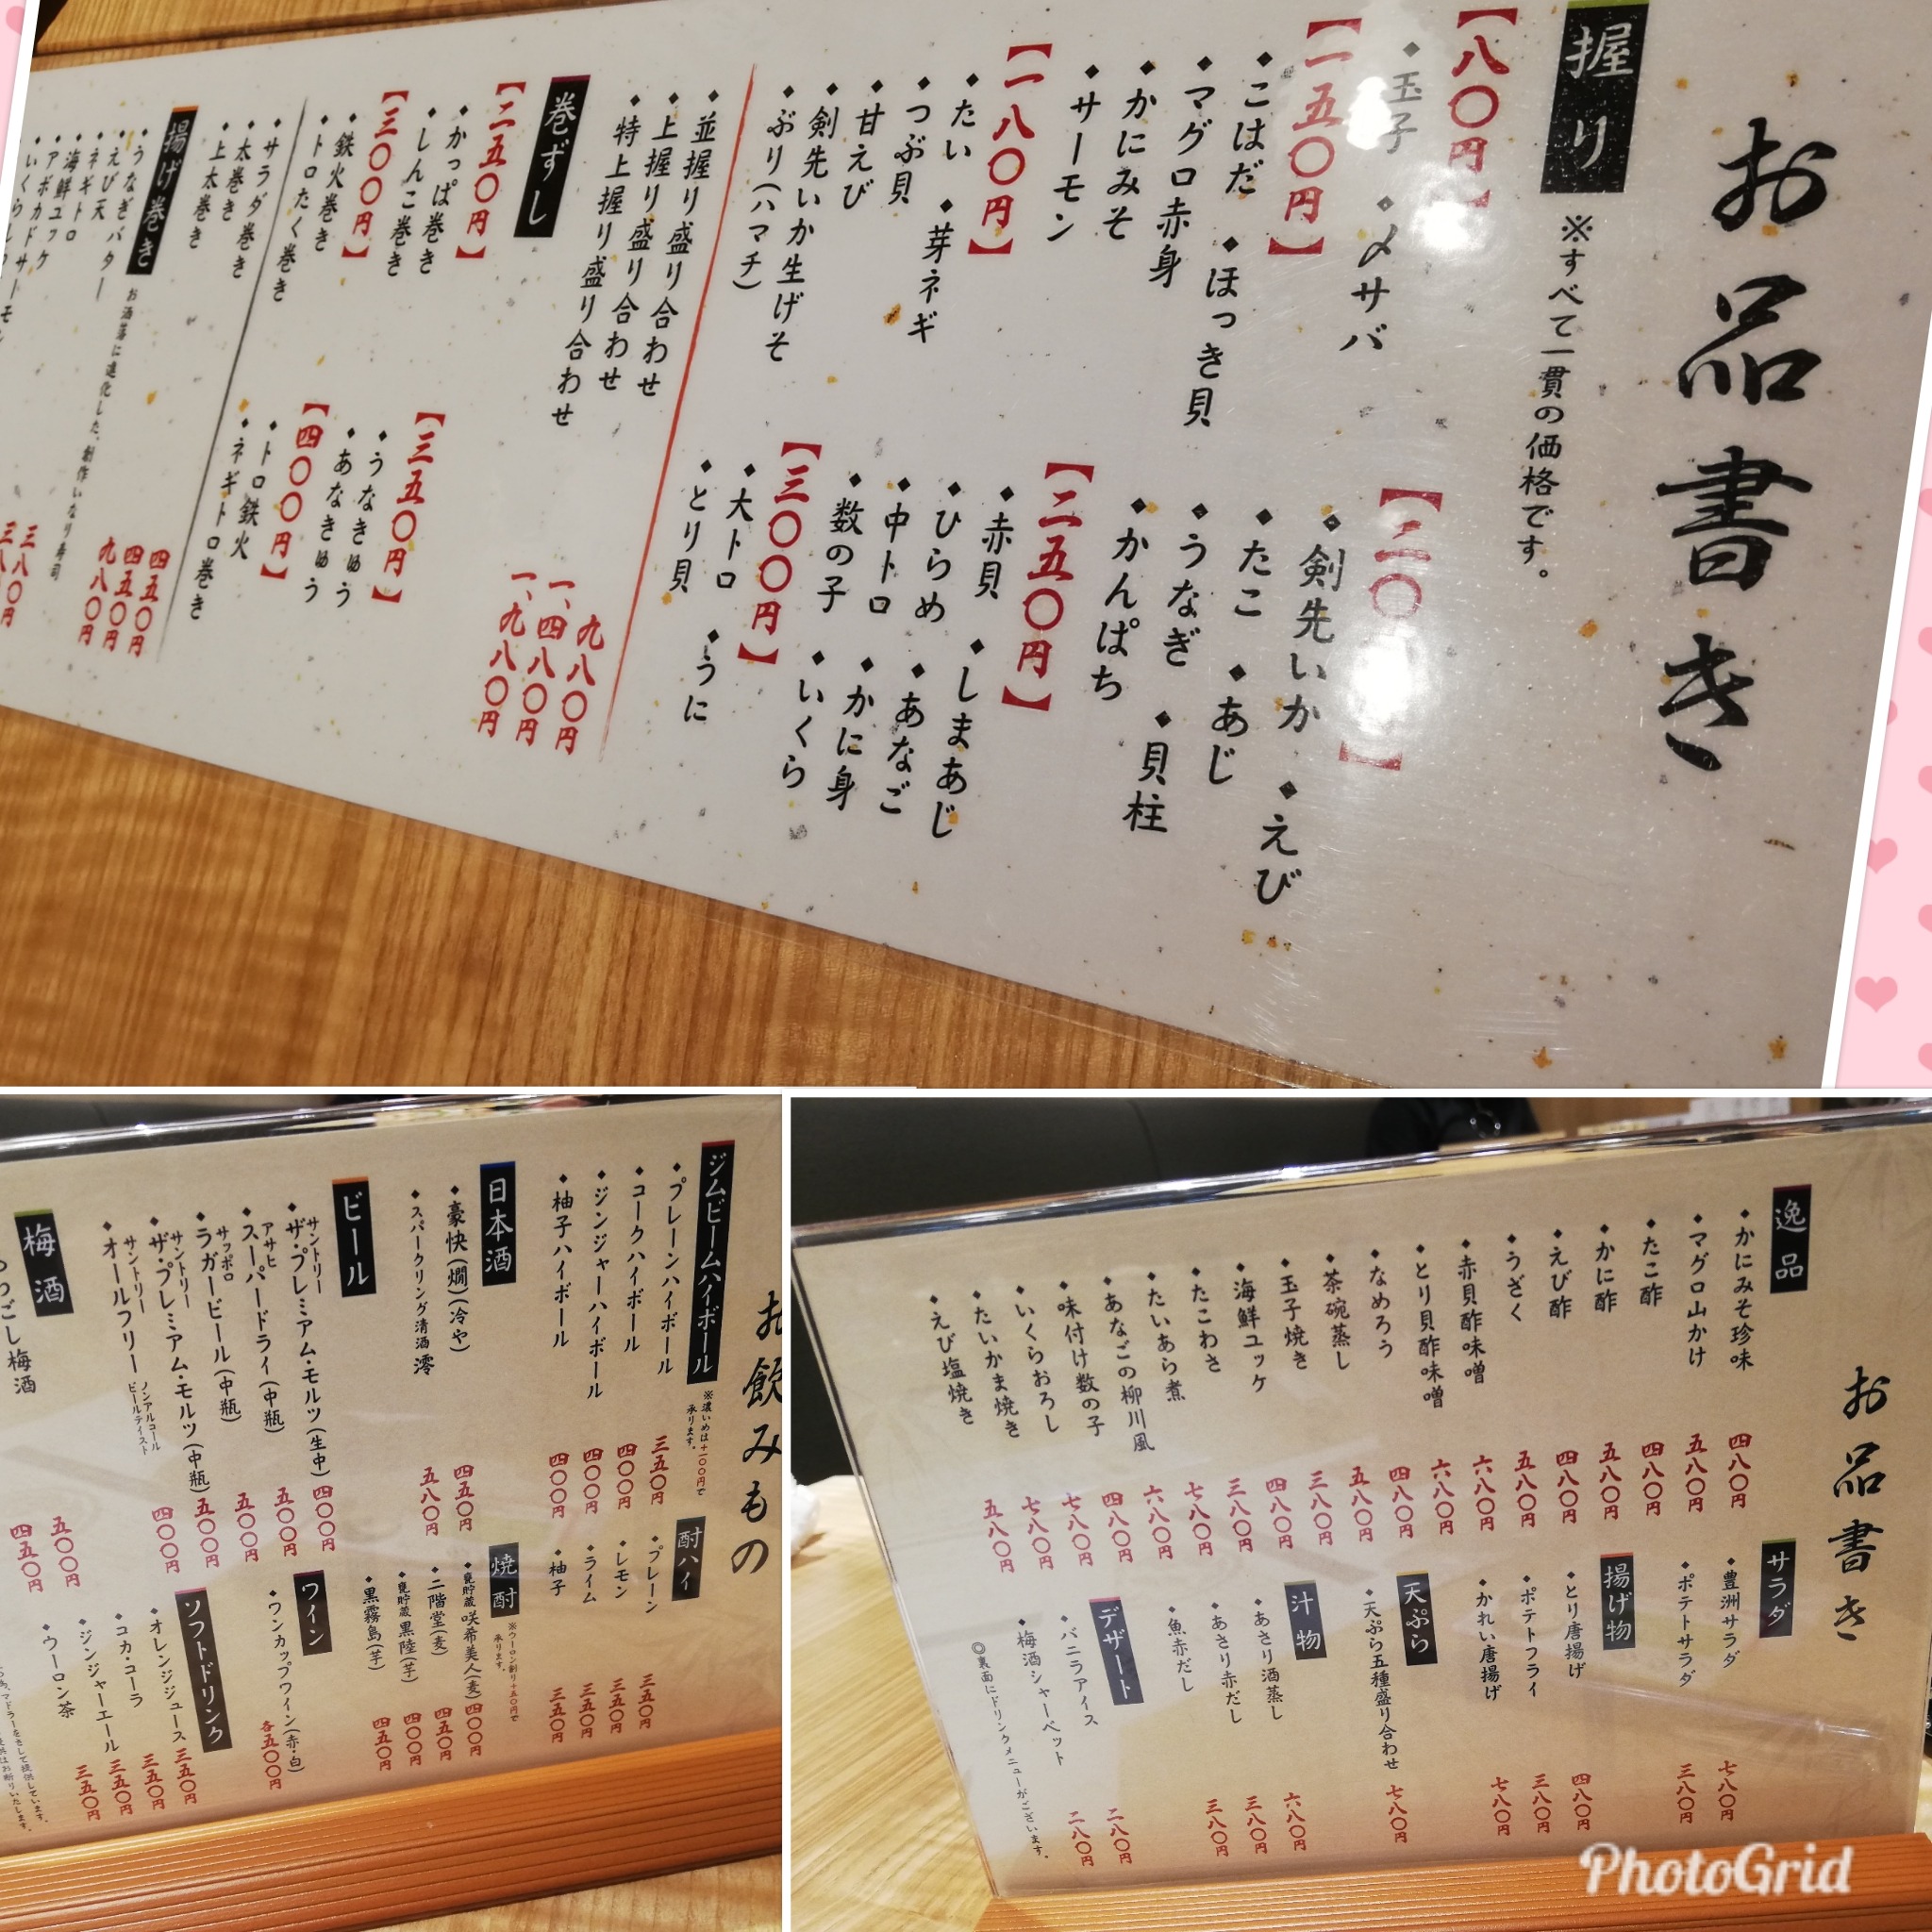 お品書き
握り
※すべて一貫の価格です。
【八〇円】
玉子
〆サバ
【一五〇円】
こはだ
ほっき貝
マグロ赤身
かにみそ
サーモン
【一八〇円】
たい
芽ネギ
つぶ貝
甘えび
剣先いか生げそ
ぶり(ハマチ)
剣先いか
えび
たこ
あじ
うなぎ
貝柱
かんぱち
【二五〇円】
赤貝
しまあじ
ひらめ
あなご
中トロ
かに身
数の子
いくら
【三〇〇円】
大トロ
うに
とり貝
並握り盛り合わせ 九八〇円
上握り盛り合わせ 一、四八〇円
特上握り盛り合わせ 一、九八〇円
巻ずし
【二五〇円】
かっぱ巻き
しんこ巻き
【三〇〇円】
鉄火巻き
トロたく巻き
【三五〇円】
うなきゅう
あなきゅう
【四〇〇円】
トロ鉄火
ネギトロ巻き
サラダ巻き 四五〇円
太巻き 四五〇円
上太巻き 九八〇円
揚げ巻き
お洒落に進化した、創作いなり寿司
うなぎバター
えび天
ネギトロ
海鮮ユッケ
アボカドサーモン
お飲みもの
ジムビームハイボール
※濃いめは+一〇〇円で
承ります。
プレーンハイボール 三五〇円
コークハイボール 四〇〇円
ジンジャーハイボール 四〇〇円
柚子ハイボール 四〇〇円
酎ハイ
プレーン 三五〇円
レモン 三五〇円
ライム 三五〇円
柚子 三五〇円
日本酒
豪快(燗)(冷や) 四五〇円
スパークリング清酒 澪 五八〇円
焼酎
※ウーロン割り+五〇円で
承ります。
甕貯蔵 咲希美人(麦) 四〇〇円
二階堂(麦) 四五〇円
甕貯蔵 黒陸(芋) 四〇〇円
黒霧島(芋) 四五〇円
ビール
サントリー
ザ・プレミアム・モルツ(生中) 四〇〇円
アサヒ
スーパードライ(中瓶) 五〇〇円
サッポロ
ラガービール(中瓶) 五〇〇円
サントリー
ザ・プレミアム・モルツ(中瓶) 五〇〇円
サントリー
オールフリー ノンアルコール
ビールテイスト 四〇〇円
ワイン
ワンカップワイン(赤・白) 各五〇〇円
梅酒
ごし梅酒
五〇〇円
四五〇円
ソフトドリンク
オレンジジュース 三五〇円
コカ・コーラ 三五〇円
ジンジャーエール 三五〇円
ウーロン茶 三五〇円
お品書き
逸品
かにみそ珍味 四八〇円
マグロ山かけ 五八〇円
たこ酢 四八〇円
かに酢 五八〇円
えび酢 四八〇円
うざく 五八〇円
赤貝酢味噌 六八〇円
とり貝酢味噌 六八〇円
なめろう 四八〇円
茶碗蒸し 五八〇円
玉子焼き 三八〇円
海鮮ユッケ 四八〇円
たこわさ 三八〇円
たいあら煮 七八〇円
あなごの柳川風 六八〇円
味付け数の子 四八〇円
いくらおろし 七八〇円
たいかま焼き 七八〇円
えび塩焼き 五八〇円
サラダ
豊洲サラダ 七八〇円
ポテトサラダ 三八〇円
揚げ物
とり唐揚げ 四八〇円
ポテトフライ 三八〇円
かれい唐揚げ 七八〇円
天ぷら
天ぷら五種盛り合わせ 七八〇円
汁物
あさり酒蒸し 六八〇円
あさり赤だし 三八〇円
魚赤だし 三八〇円
デザート
バニラアイス 二八〇円
梅酒シャーベット 二八〇円
◎裏面にドリンクメニューがございます。
PhotoGrid